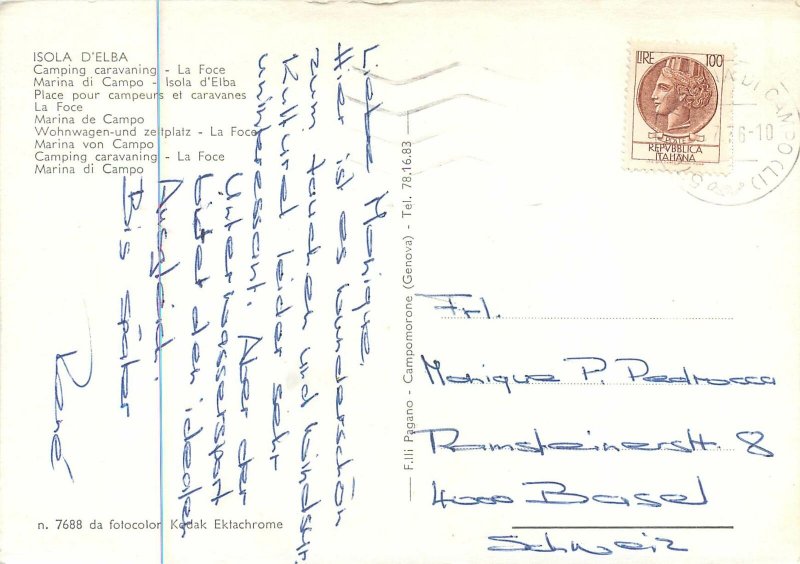 ISOLA D'ELBA
Camping caravaning - La Foce
Marina di Campo - Isola d'Elba
Place pour campeurs et caravanes
La Foce
Marina de Campo
Wohnwagen-und zeltplatz - La Foce
Marina von Campo
Camping caravaning - La Foce
Marina di Campo
Liebe Monique,
Hier ist es wunderschön
zum tauchen und
Kulturel leider sehr
uninteressant. Aber der
Unterwassersport
bietet den idealen
Ausgleich.
Bis später
René
n. 7688 da fotocolor Kodak Ektachrome
F.lli Pagano - Campomorone (Genova) - Tel. 78.16.83
LIRE 100
POSTE
REPVBBLICA
ITALIANA
DI CAMPO (LI)
Frl.
Monique P. Pedrocca
Ramsteinerstr. 8
4000 Basel
Schweiz